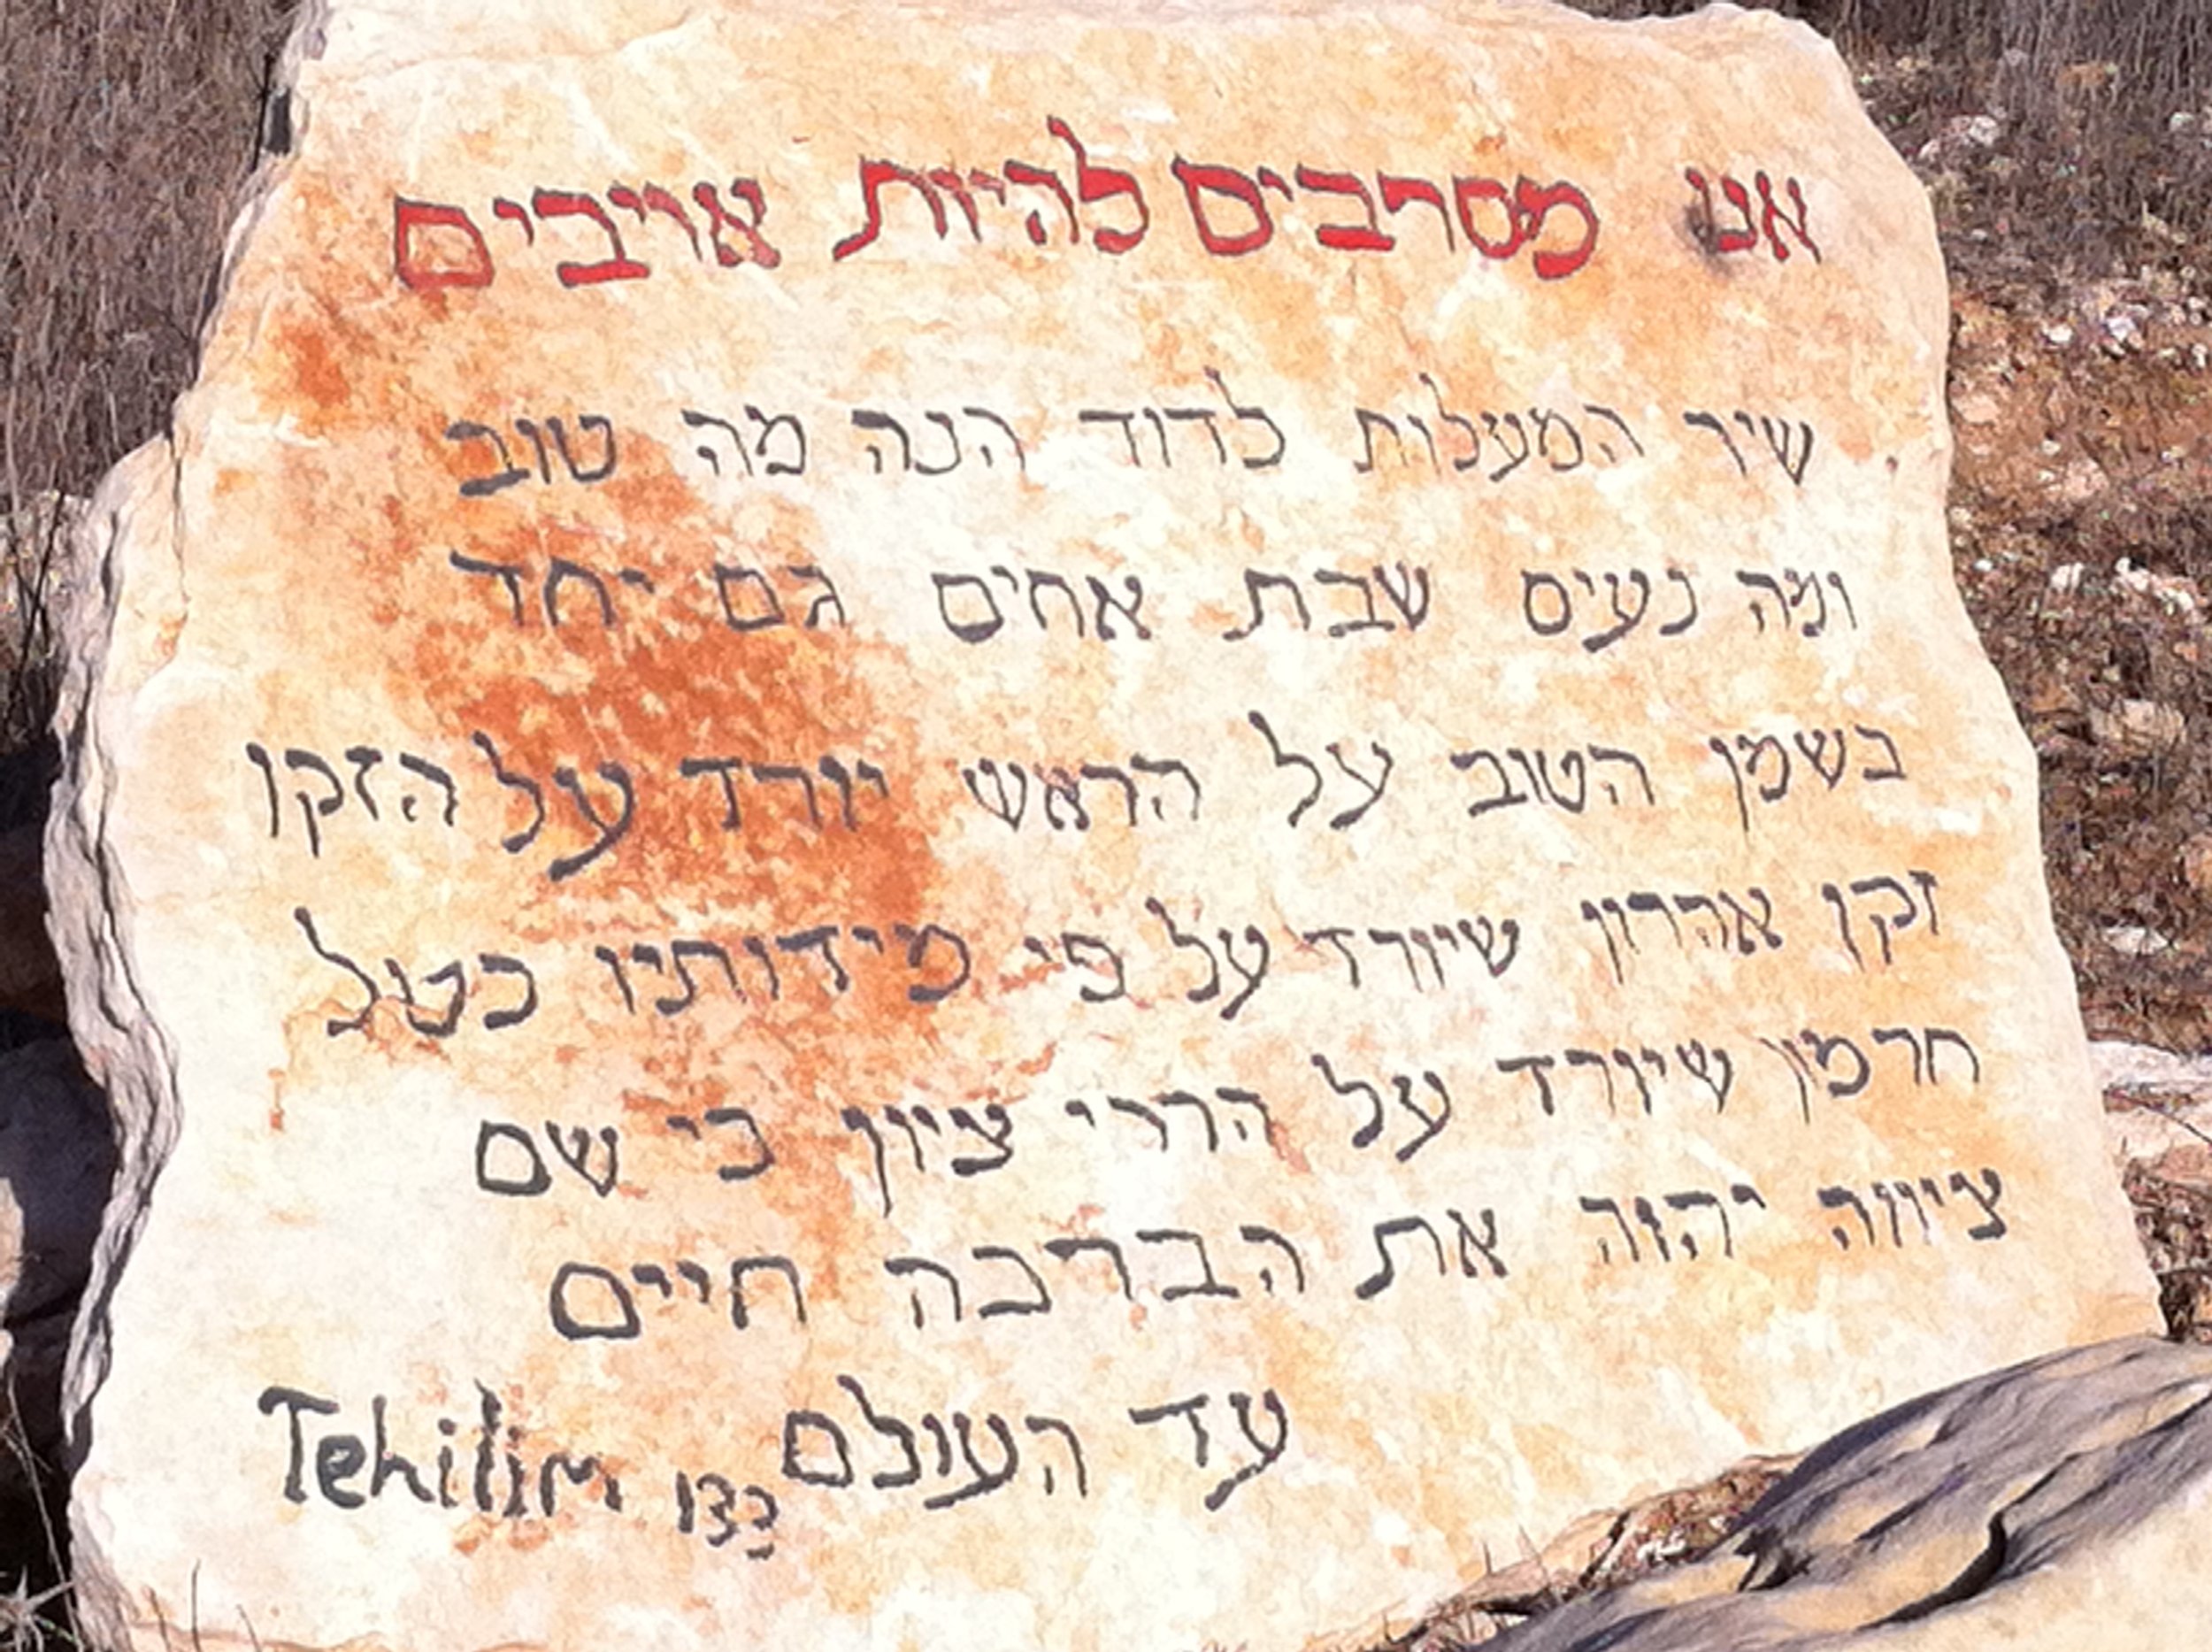 אנו מסרבים להיות אויבים
שיר המעלות לדוד הנה מה טוב
ומה נעים שבת אחים גם יחד
כשמן הטוב על הראש יורד על הזקן
זקן אהרון שיורד על פי מידותיו כטל
חרמון שיורד על הררי ציון כי שם
ציווה יהוה את הברכה חיים
עד העולם 133 Tehilim